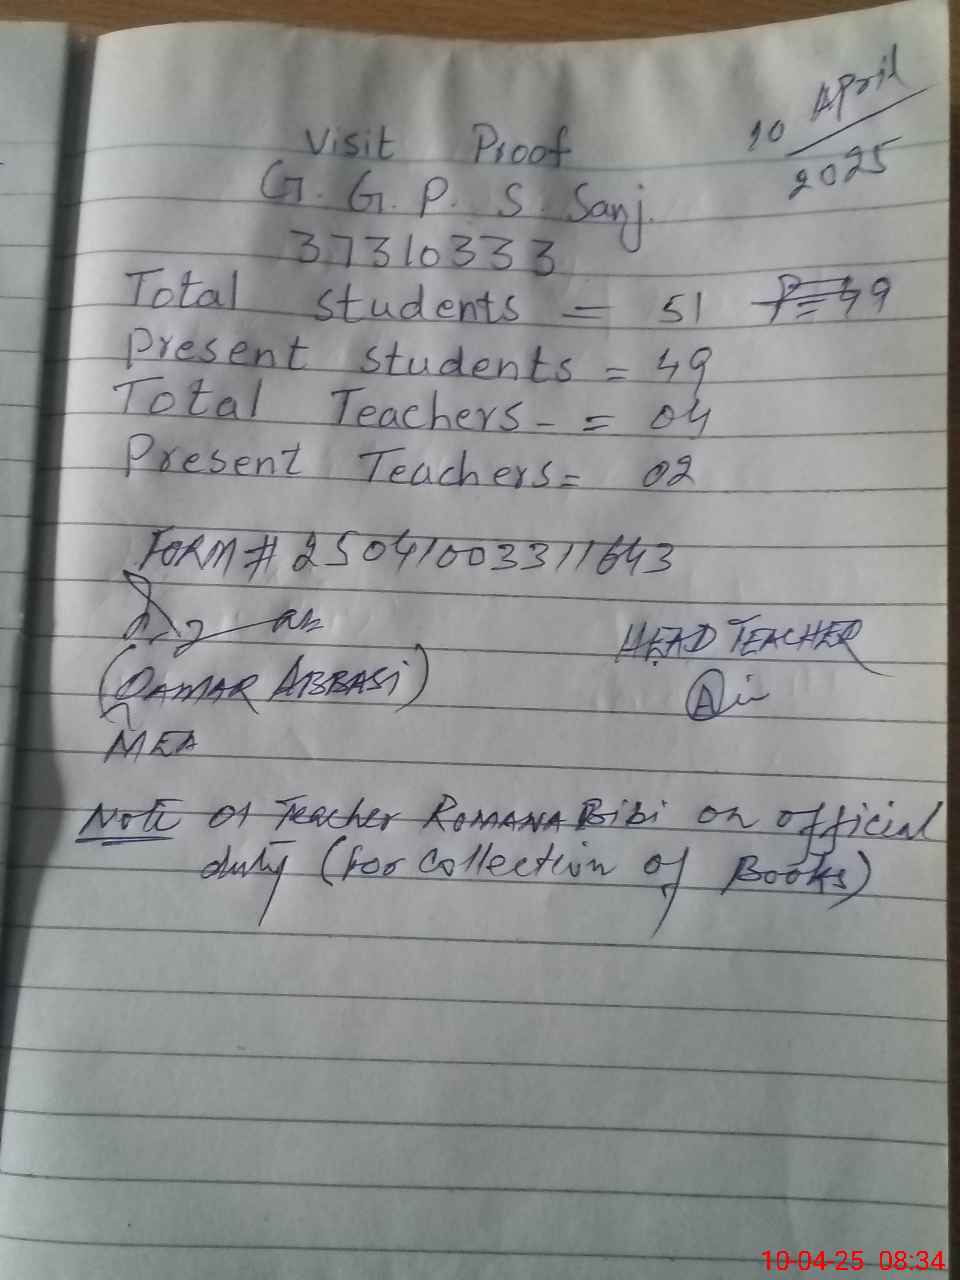 10 April
2025
Visit Proof
G. G. P. S. Sanj.
37310333
Total students = 51 P=49
Present students = 49
Total Teachers - = 04
Present Teachers = 02
FORM # 25041003311643
HEAD TEACHER
(QAMAR ABBASI)
MEA
Note 01 Teacher ROMANA BiBi on official
duty (for collection of Books)
10-04-25 08:34